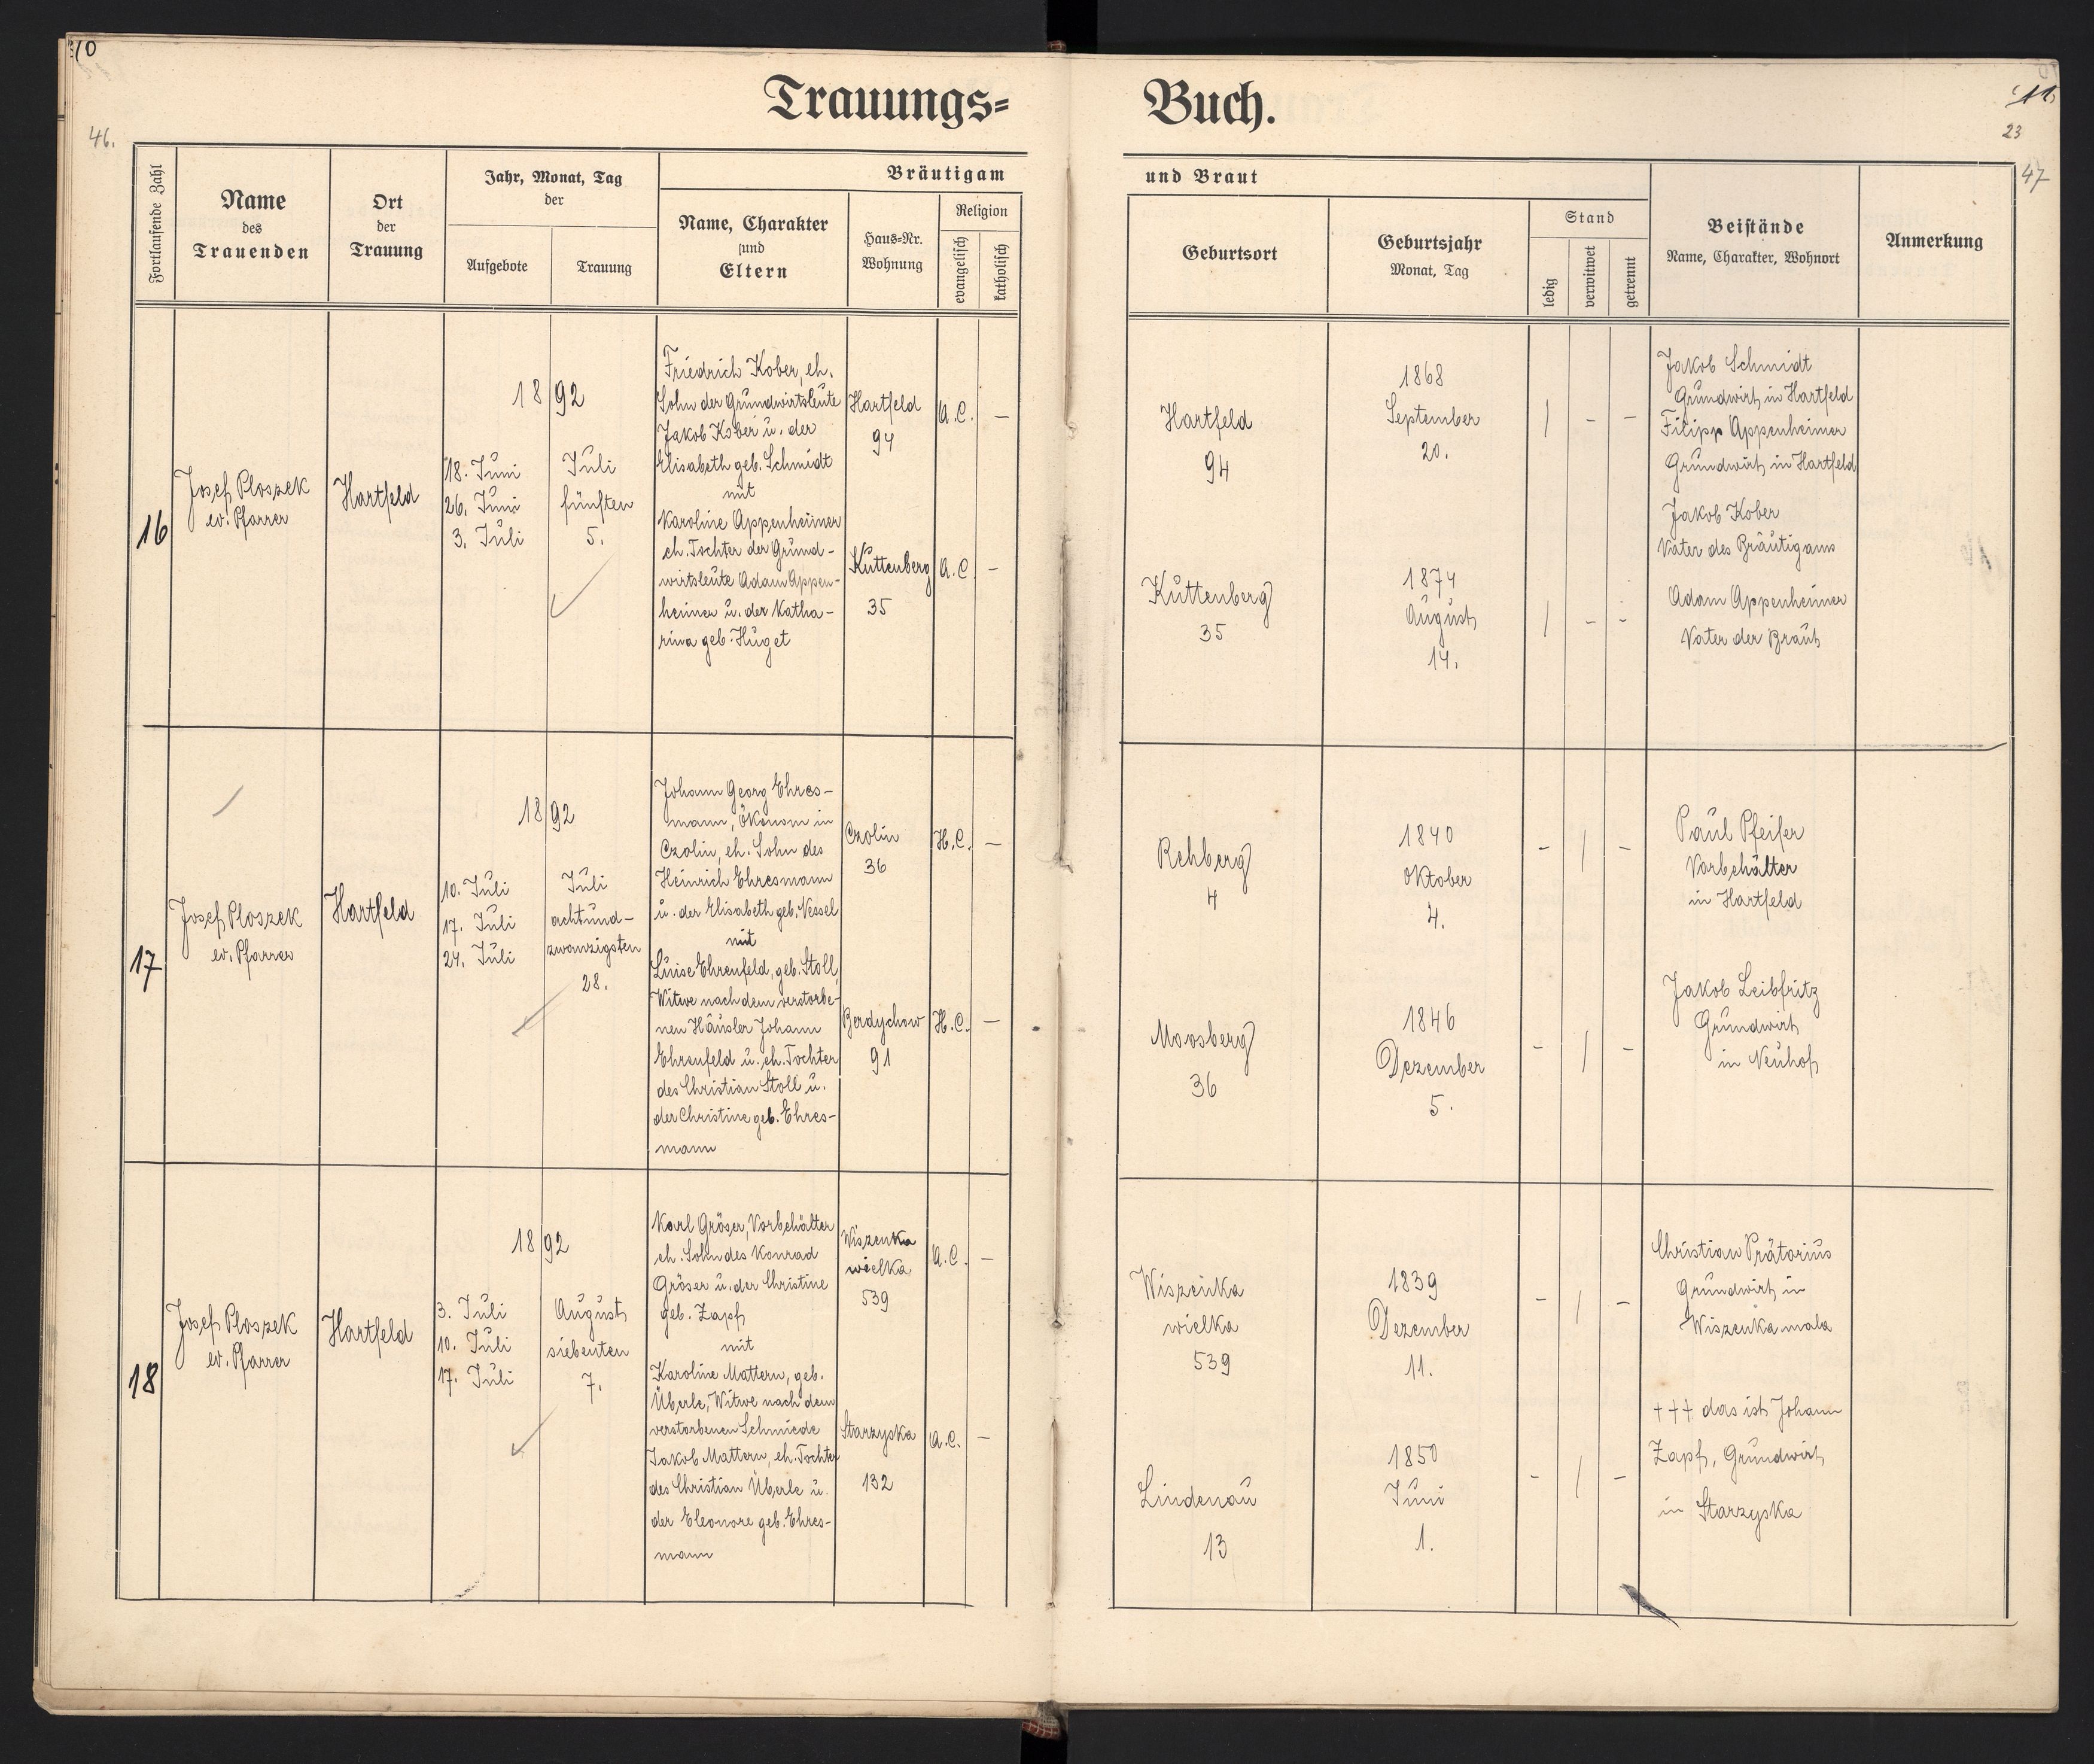 10
46.
Trauungs=
Fortlaufende Zahl
Name
des
Trauenden
Ort
der
Trauung
Jahr, Monat, Tag
der
Aufgebote
Trauung
Bräutigam
Name, Charakter
und
Eltern
Haus=Nr.
Wohnung
Religion
evangelisch
katholisch
Buch.
11
23
47
und Braut
Geburtsort
Geburtsjahr
Monat, Tag
Stand
ledig
verwitwet
getrennt
Beistände
Name, Charakter, Wohnort
Anmerkung
16
Josef Ploszek
ev. Pfarrer
Hartfeld
1892
18. Juni
26. Juni
3. Juli
Juli
fünften
5.
Friedrich Kober, eh.
Sohn der Grundwirtsleute
Jakob Kober u. der
Elisabeth geb. Schmidt
mit
Karoline Appenheimer
eh. Tochter der Grund-
wirtsleute Adam Appen-
heimer u. der Katha-
rina geb. Huget
Hartfeld
94
A.C. –
Kuttenberg
35
A.C. –
Hartfeld
94
1868
September
20.
| – –
Kuttenberg
35
1874
August
14.
| – –
Jakob Schmidt
Grundwirt in Hartfeld
Filipp Appenheimer
Grundwirt in Hartfeld
Jakob Kober
Vater des Bräutigams
Adam Appenheimer
Vater der Braut
17
Josef Ploszek
ev. Pfarrer
Hartfeld
1892
10. Juli
17. Juli
24. Juli
Juli
achtund-
zwanzigsten
28.
Johann Georg Ehres-
mann, Ökonom in
Czolin, eh. Sohn des
Heinrich Ehresmann
u. der Elisabeth geb. Nessel
mit
Luise Ehrenfeld, geb. Stoll,
Witwe nach dem verstorbe-
nen Häusler Johann
Ehrenfeld u. eh. Tochter
des Christian Stoll u.
der Christine geb. Ehres-
mann
Czolin
36
H.C. –
Berdychow
91
H.C. –
Rehberg
4
1840
Oktober
4.
– | –
Moosberg
36
1846
Dezember
5.
– | –
Paul Pfeifer
Vorbehälter
in Hartfeld
Jakob Leibfritz
Grundwirt
in Neuhof
18
Josef Ploszek
ev. Pfarrer
Hartfeld
1892
3. Juli
10. Juli
17. Juli
August
siebenten
7.
Karl Gröser, Vorbehälter
eh. Sohn des Konrad
Gröser u. der Christine
geb. Zapf
mit
Karoline Mattern, geb.
Überle, Witwe nach dem
verstorbenen Schmiede
Jakob Mattern, eh. Tochter
des Christian Überle u.
der Eleonore geb. Ehres-
mann
Wiszenka
wielka
539
A.C. –
Starzyska
132
A.C. –
Wiszenka
wielka
539
1839
Dezember
11.
– | –
Lindenau
13
1850
Juni
1.
– | –
Christian Prätorius
Grundwirt in
Wiszenka mala
+++ das ist Johann
Zapf, Grundwirt
in Starzyska